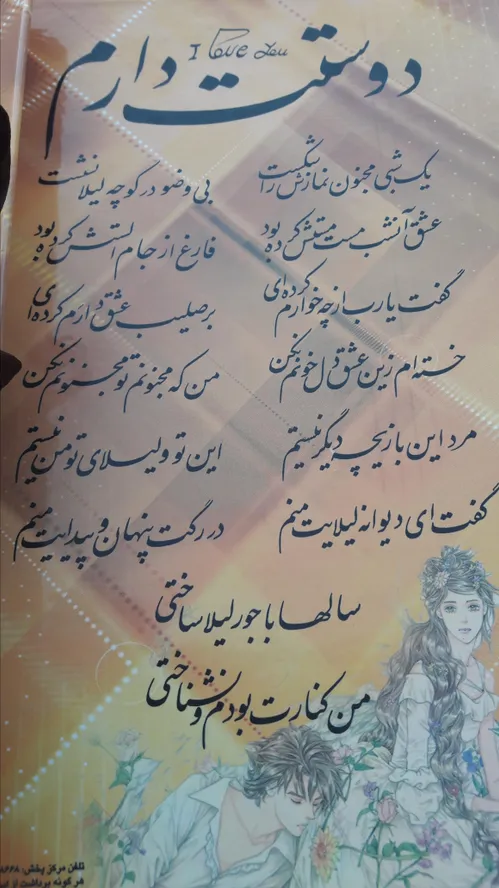 I Love You
دوستت دارم
یک شبی مجنون نمازش را شکست بی وضو در کوچه لیلا نشست
عشق آنشب مست مستش کرده بود فارغ از جام الستش کرده بود
گفت یارب از چه خوارم کرده ای بر صلیب عشق دارم کرده ای
خسته ام زین عشق دل خونم نکن من که مجنونم تو مجنونم نکن
مرد این بازیچه دیگر نیستم این تو و لیلای تو من نیستم
گفت ای دیوانه لیلایت منم در رگت پنهان و پیدایت منم
سالها با جور لیلا ساختی
من کنارت بودم و نشناختی
تلفن مرکز پخش:
هر گونه برداشت از